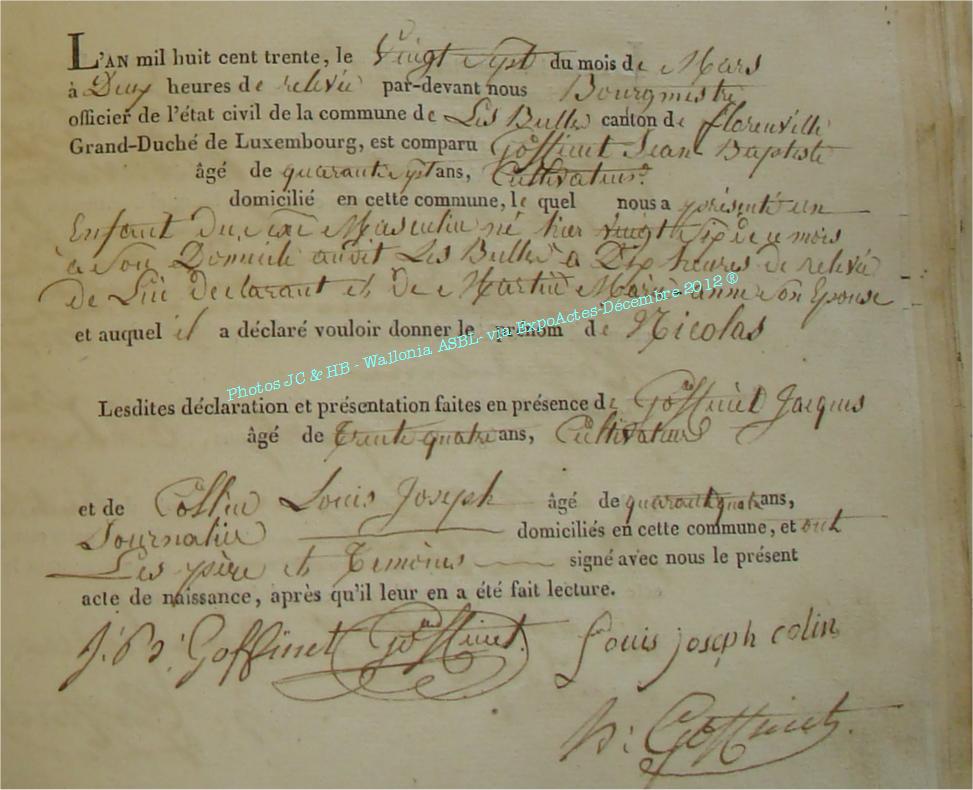 L'AN mil huit cent trente, le Vingt Sept du mois de Mars
à Deux heures de relevée par-devant nous Bourgmestre
officier de l'état civil de la commune de Les Bulles canton de florenville
Grand-Duché de Luxembourg, est comparu Goffinet Jean Baptiste
âgé de quarante sept ans, Cultivateur
domicilié en cette commune, le quel nous a présenté un
Enfant du sexe Masculin né hier vingt six de ce mois
à Son Domicile audit Les Bulles à Dix heures de relevée
de Lui declarant et de Martin Marie anne Son Epouse
et auquel il a déclaré vouloir donner le prénom de Nicolas
Photos JC & HB - Wallonia ASBL- via ExpoActes-Décembre 2012 ®
Lesdites déclaration et présentation faites en présence de Goffinet Jacques
âgé de Trente quatre ans, Cultivateur
et de Collin Louis Joseph âgé de quarante quatre ans,
Journalier domiciliés en cette commune, et ont
Les père et Temoins signé avec nous le présent
acte de naissance, après qu'il leur en a été fait lecture.
J. B. Goffinet Goffinet. Louis joseph colin
Goffinet.